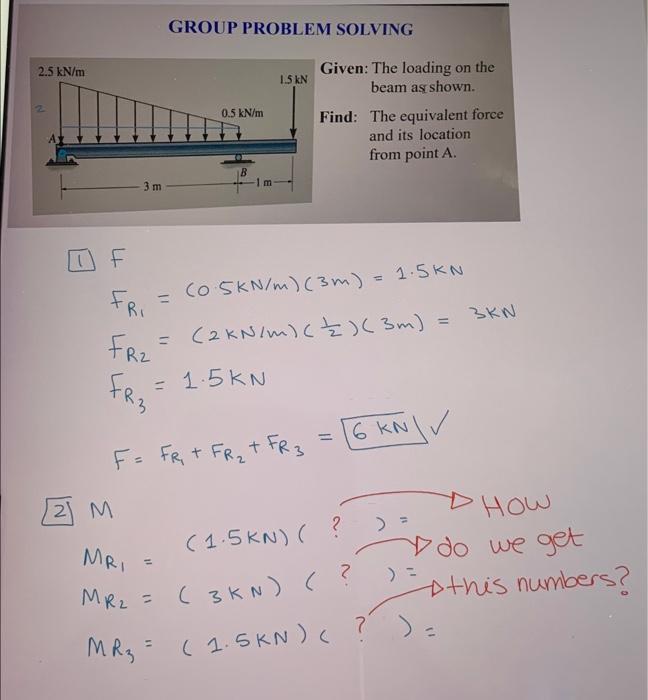 GROUP PROBLEM SOLVING
2.5 kN/m
1.5 kN
2
0.5 kN/m
A
B
3 m
1 m
Given: The loading on the
beam as shown.
Find: The equivalent force
and its location
from point A.
1 F
FR1 = (0.5KN/m)(3m) = 1.5KN
FR2 = (2KN/m)(1/2)(3m) = 3KN
FR3 = 1.5KN
F = FR1 + FR2 + FR3 = 6 KN ✓
2 M
MR1 = (1.5KN)( ? ) =
MR2 = ( 3KN) ( ? ) =
MR3 = ( 1.5KN)( ? ) =
HOW
do we get
this numbers?